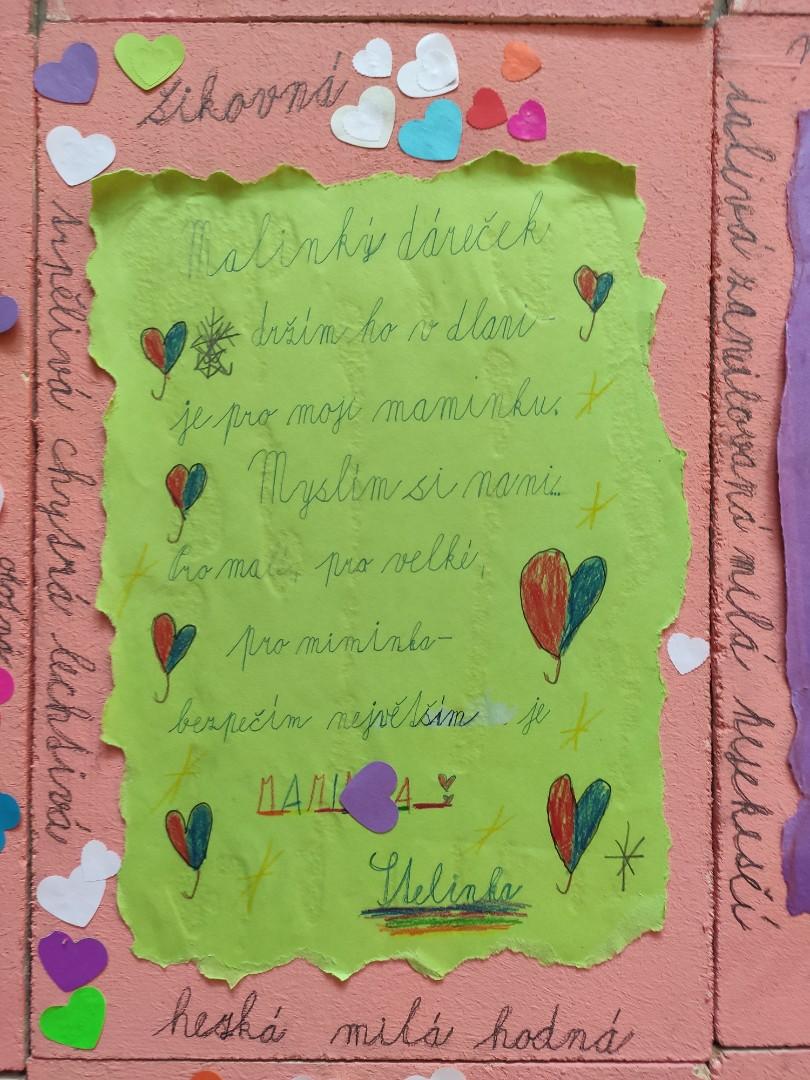 šikovná
trpělivá chytrá lechtivá
Malinký dáreček
držím ho v dlani -
je pro moji maminku.
Myslím si na ni...
Pro malé, pro velké,
pro miminka-
bezpečím největším je
MAMI A
Stelinka
hezká milá hodná
zamilovaná milá